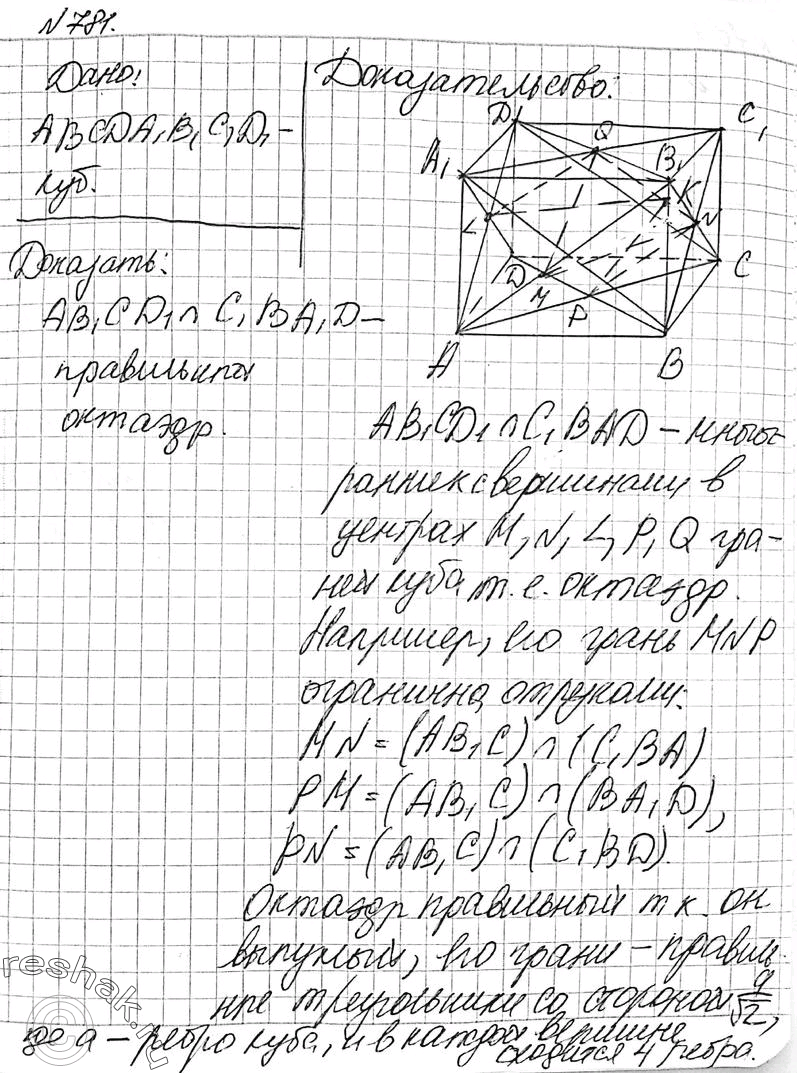 N781.
Дано:
ABCDA₁B₁C₁D₁ –
куб.
Доказать:
AB₁CD₁ ∩ C₁BA₁D –
правильный
октаэдр.
Доказательство:
D₁ Q C₁
A₁ B₁ K
L N
D M C
P
A B
AB₁CD₁ ∩ C₁BAD – много-
гранник с вершинами в
центрах M, N, L, P, Q гра-
ней куба т. е. октаэдр.
Например, его грань MNP
огранична отрезками:
MN = (AB₁C) ∩ (C₁BA)
PM = (AB₁C) ∩ (BA₁D),
PN = (AB₁C) ∩ (C₁BD)
Октаэдр правильный т к. он
выпуклый, его грани – правиль-
ные треугольники со стороной a/√2,
где a – ребро куба, и в каждой вершине
сходится 4 ребра.
reshak.ru